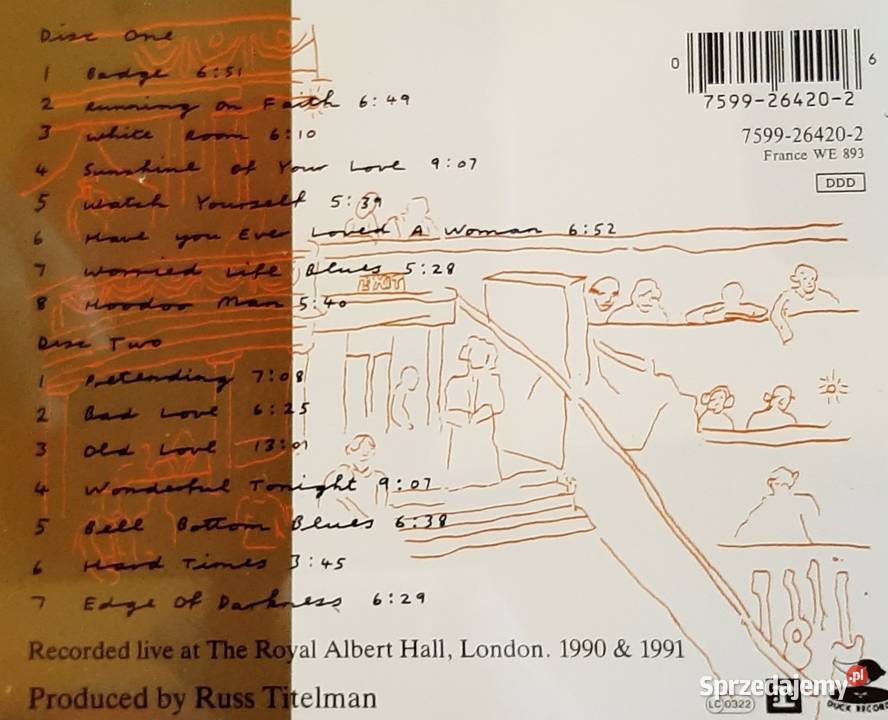 Disc One
1 Badge 6:51
2 Running On Faith 6:49
3 White Room 6:10
4 Sunshine Of Your Love 9:07
5 Watch Yourself 5:39
6 Have You Ever Loved A Woman 6:52
7 Worried Life Blues 5:28
8 Hoodoo Man 5:40
Disc Two
1 Pretending 7:08
2 Bad Love 6:25
3 Old Love 13:01
4 Wonderful Tonight 9:07
5 Bell Bottom Blues 6:38
6 Hard Times 3:45
7 Edge Of Darkness 6:29
Recorded live at The Royal Albert Hall, London. 1990 & 1991
Produced by Russ Titelman
0 7599-26420-2 6
7599-26420-2
France WE 893
DDD
EXIT
LC 0322
DUCK RECORDS
Sprzedajemy.pl